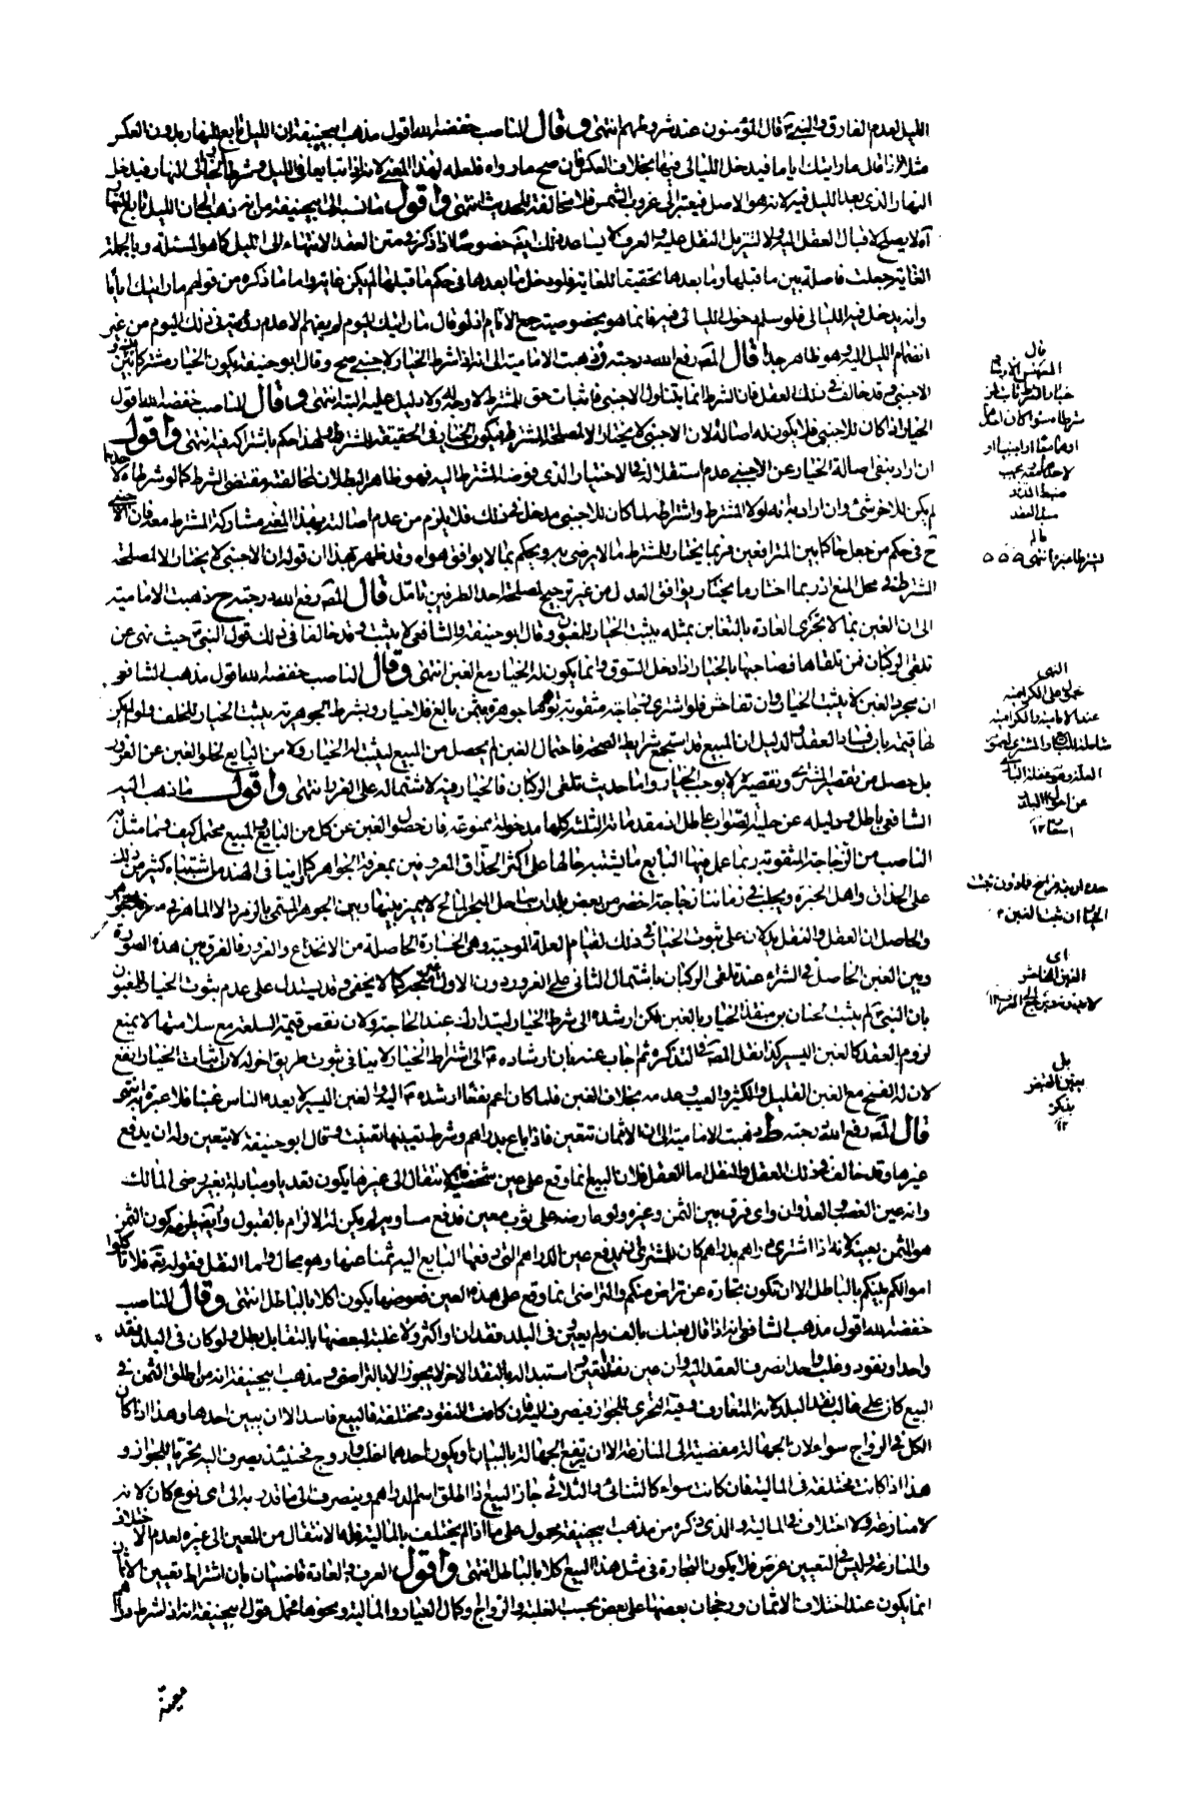 الليل لعدم الفارق والنبي ص قال المؤمنون عند شروطهم انتهى وقال الناصب خفضه الله اقول مذهب ابيحنيفة ان الليل تابع للنهار بدون العكس
مثلا اذا قال ما رايتك اياما فيدخل الليالي فيها بخلاف العكس فان صح ما رواه فلعله لهذا المعنى لانه اذا تبايعا في الليل وشرط الخيار الى النهار فيدخل
النهار الذي بعد الليل فيه لانه هو الاصل فيعتبر الى غروب الشمس فلا مخالفة للحديث انتهى واقول ما نسبه الى ابيحنيفة من انه ذهب الى ان الليل تابع للنهار
آه لا يصلح لاقبال العقل اليه ولا لتنزيل النقل عليه والعرف لا يساعد ذلك ايضا خصوصا اذا ذكر في متن العقد الانتهاء الى الليل كما هو المسئلة وبالجملة
الغاية جعلت فاصلة بين ما قبلها وما بعدها تحقيقا للغاية فلو دخل ما بعدها في حكم ما قبلها لم يكن غاية واما ما ذكره من قولهم ما رايتك اياما
وانه يدخل فيه الليالي فلو سلم دخول الليالي فيه فانما هو بخصوصية جمع الايام اذ لو قال ما رايتك اليوم لم يفهم الا عدم رؤيته في ذلك اليوم من غير
انضمام الليل اليه وهو ظاهر جدا قال المص رفع الله درجته و ذهبت الامامية الى انه اذا شرط الخيار لاجنبي صح وقال ابو حنيفة يكون الخيار مشتركا بينه و
الاجنبي وقد خالف في ذلك العقل فان الشرط انما يتناول الاجنبي فاثبات حق للمشترط لا وجه له ولا دليل عليه البتة انتهى وقال الناصب خفضه الله اقول
الخيار اذا كان للاجنبي فلا يكون له اصالة لان الاجنبي لا يختار الا لمصلحة المشترط فيكون الخيار في الحقيقة للمشترط ولهذا حكم باشتراكه فيه انتهى واقول
ان اراد بنفي اصالة الخيار عن الاجنبي عدم استقلاله في الاختيار الذي فوضه المشترط اليه فهو ظاهر البطلان لمخالفته مقتضى الشرط كما لو شرطاه لاحدهما
لم يكن للآخر شيء وان اراد به انه لولا المشترط واشتراطه لما كان للاجنبي مدخل في ذلك فلا يلزم من عدم اصالته بهذا المعنى مشاركة المشترط معه فان الاجنبي
ح في حكم من جعل حاكما بين المترافعين فربما يختار للمشترط ما لا يرضى به ويحكم بما لا يوافق هواه وقد ظهر بهذا ان قوله ان الاجنبي لا يختار الا لمصلحة
المشترط في محل المنع اذ ربما اختار ما يختاره يوافق العدل من غير ترجيح لمصلحة احد الطرفين تامل قال المص رفع الله درجته ح ذهبت الامامية
الى ان الغبن بما لا تجري العادة بالتغابن بمثله يثبت الخيار للمغبون وقال ابو حنيفة والشافعي لا يثبت وقد خالفا في ذلك قول النبي ص حيث نهى عن
تلقي الركبان فمن تلقاها فصاحبها بالخيار اذا دخل السوق وانما يكون له الخيار مع الغبن انتهى وقال الناصب خفضه الله اقول مذهب الشافعي
ان مجرد الغبن لا يثبت الخيار وان تفاحش فلو اشترى زجاجة مثقوبة توهمها جوهرة بثمن بالغ فلا خيار وبشرط الجوهرية يثبت الخيار للخلف ولو لم يكن
لها قيمة بان فساد العقد والدليل ان المبيع قد استجمع شرايط الصحة فاحتمال الغبن لم يحصل من المبيع ليثبت له الخيار ولا من البايع لخلو الغبن عن الغرور
بل حصل من تقصير المشتري وتقصيره لا يوجب الخيار واما حديث تلقي الركبان فالخيار فيه لاشتماله على الغرر انتهى واقول ما ذهب اليه
الشافعي باطل ودليله عن حلية الصواب عاطل اذ مقدماته الثلثة كلها مدخولة ممنوعة فان حصول الغبن عن كل من البايع والمبيع محتمل كيف وما مثل به
الناصب من الزجاجة المثقوبة ربما عمل فيها البايع ما يشتبه حالها على اكثر الحذاق المعروفين بمعرفة الجواهر كما راينا في الهند من اشتباه كثير من ذلك
على الحذاق واهل الخبرة ويجلب في زماننا زجاجة اخضر من بعض بلدان ساحل البحر المالح لا يميز بينها وبين الجوهر المسمى بالزمرد الا الماهر في معرفة الجواهر
والحاصل ان العقل والنقل يدلان على ثبوت الخيار في ذلك لقيام العلة الموجبة وهي الخسارة الحاصلة من الانخداع والغرور فالفرق بين هذه الصورة
وبين الغبن الحاصل في الشراء عند تلقي الركبان باشتمال الثاني على الغرور دون الاول تحكم كما لا يخفى وقد يستدل على عدم ثبوت الخيار للمغبون
بان النبي ص لم يثبت لحنان بن منقذ الخيار بالغبن لكن ارشده الى شرط الخيار ليتدارك عند الحاجة ولان نقص قيمة السلعة مع سلامتها لا يمنع
لزوم العقد كالغبن اليسير كذا نقل المص في التذكرة ثم اجاب عنه بان ارشاده ص الى اشتراط الخيار لا ينافي ثبوت طريق آخر له لان اثبات الخيار انفع
لان له الفسخ مع الغبن القليل والكثير والعيب وعدمه بخلاف الغبن فلما كان اعم نفعا ارشده ص اليه والغبن اليسير لا يعده الناس غبنا فلا عبرة به انتهى
قال المص رفع الله درجته ط ذهبت الامامية الى ان الاثمان تتعين فاذا باع بدراهم وشرط تعيينها تعينت وقال ابو حنيفة لا يتعين وله ان يدفع
غيرها وقد خالف في ذلك العقل والنقل اما العقل فلان البيع انما وقع على عين شخصية فالانتقال الى غيرها يكون تعديا ومبادلة بغير رضى المالك
وانه عين الغصب والعدوان واي فرق بين الثمن وغيره ولو عارضه على ثوب معين فدفع مساويه لم يكن له الالزام بالقبول وايضا يلزمه كون الثمن
هو المثمن بعينه لانه اذا اشترى دراهم بدراهم كان للمشتري ان يدفع عين الدراهم التي دفعها البايع اليه ثمنا عنها وهو محال واما النقل فقوله تعالى فلا تاكلوا
اموالكم بينكم بالباطل الا ان تكون تجارة عن تراض منكم والتراضي انما وقع على هذه العين فعوضها يكون اكلا بالباطل انتهى وقال الناصب
خفضه الله اقول مذهب الشافعي انه اذا قال بعتك بالف ولم يعين وفي البلد نقدان او اكثر ولا غلبة لبعضها بالتقابل بطل ولو كان في البلد نقد
واحد او نقود وغلب واحد انصرف العقد اليه وان عين نقدا تعين واستبداله بالنقد الآخر لا يجوز الا بالتراضي و مذهب ابيحنيفة انه من اطلق الثمن في
البيع كان على غالب نقد البلد لانه المتعارف وفيه التحري للجواز فيصرف اليه فان كانت النقود مختلفة فالبيع فاسد الا ان يبين احدها وهذا اذا كان
الكل في الرواج سواء لان الجهالة مفضية الى المنازعة الا ان يرتفع الجهالة بالبيان او يكون احدهما اغلب واروج فحينئذ يصرف اليه تحريا للجواز و
هذا اذا كانت مختلفة في المالية فان كانت سواء كالثنائي والثلاثي جاز البيع اذا اطلق اسم الدراهم وينصرف الى ما قدر به الى اي نوع كان لانه
لا منازعة ولا اختلاف في المالية والذي ذكره من مذهب ابيحنيفة محمول على ما اذا لم يختلف بالمالية فله الانتقال من المعين الى غيره لعدم الاختلاف
والمنازعة وليس في التعيين غرض فلا يكون التجارة في مثل هذا البيع اكلا بالباطل انتهى واقول العرف والعادة قاضيان بان اشتراط تعيين الاثمان
انما يكون عند اختلاف الاثمان ورجحان بعضها على بعض بحسب الغلبة والرواج وكمال العيار والمالية ونحوها فحمل قول ابيحنيفة انه اذا شرط دراهم
معينة
قال
شرطا سواء كان
او اجنبيا او
النهي
محمول على الكراهية
عند الامامية والكراهية
اي
الغبن الفاحش
بل